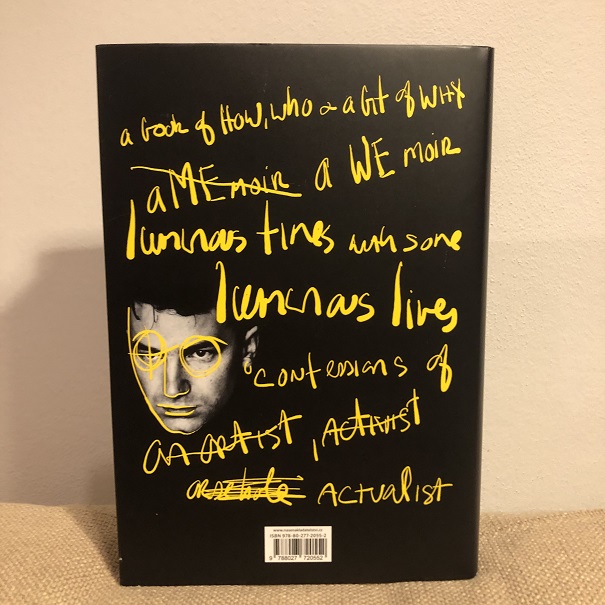 a book of How, who & a bit of WHY
a MEmoir a WE moir
luminous times with some
luminous lives
confessions of
an artist, ACTiViST
arsehole ACTUALIST
ISBN 978-80-277-2055-2
9 788027 720552